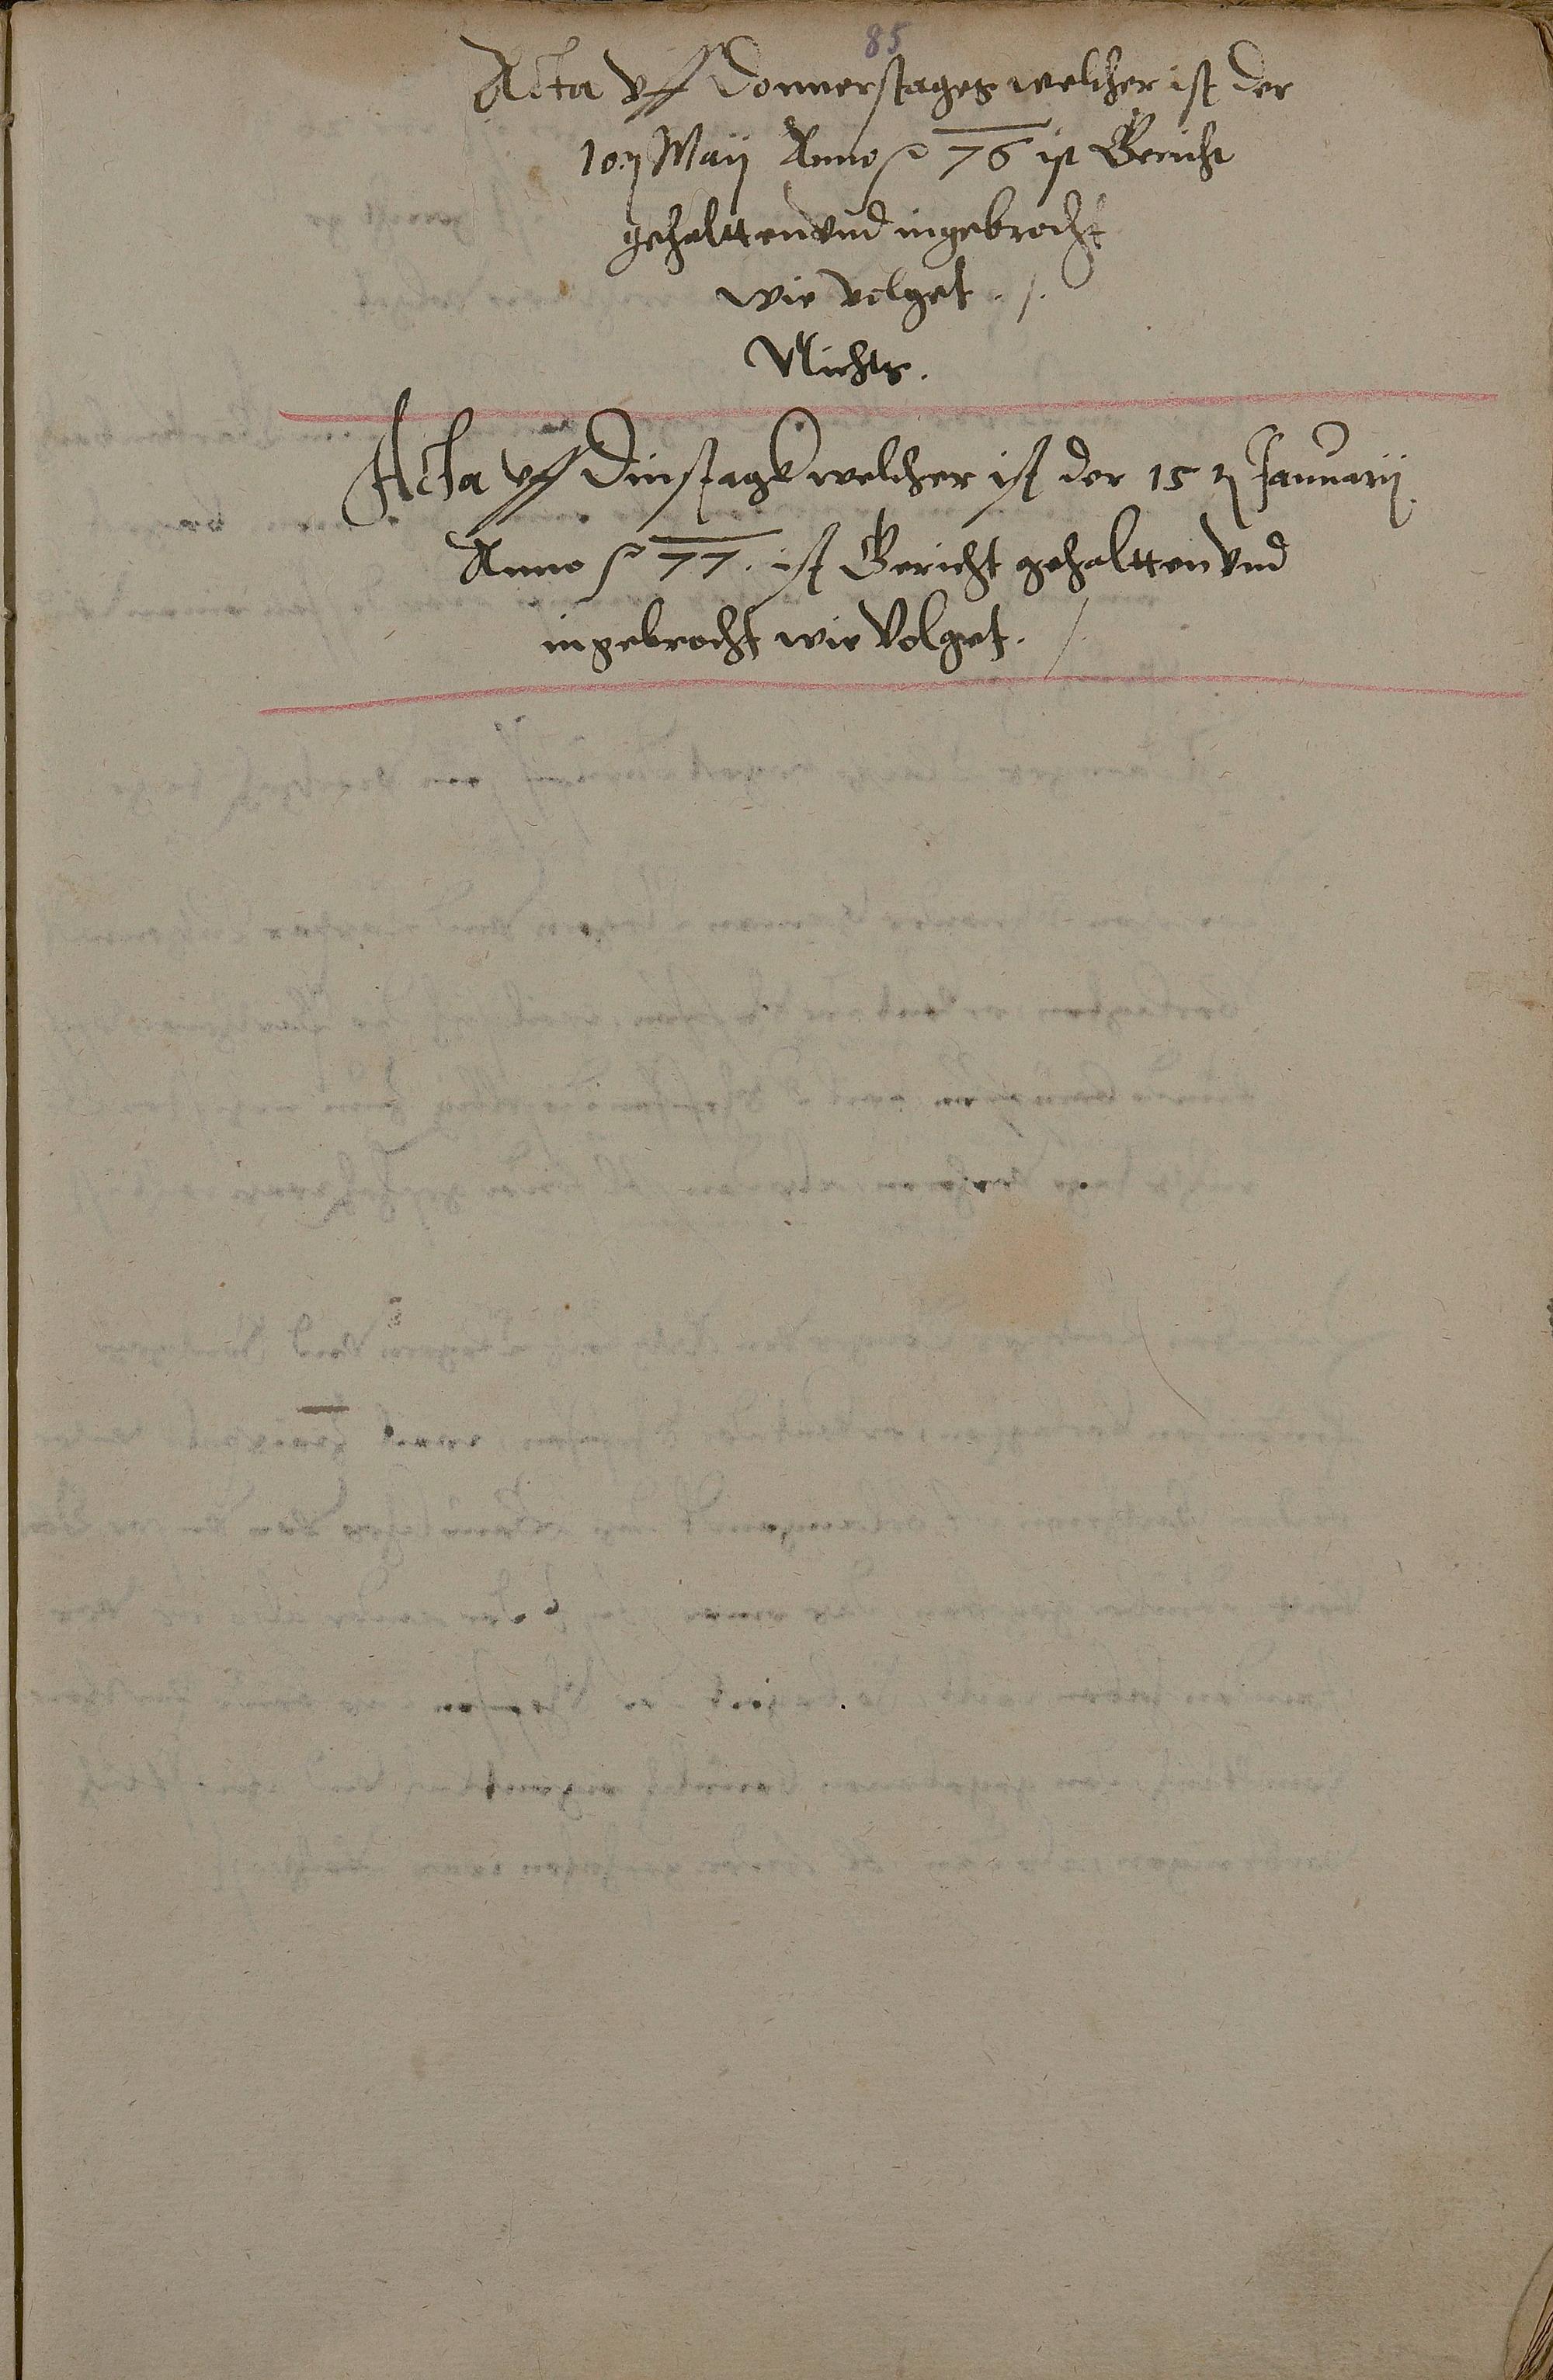 85
Acta vff Donnerstages welcher ist der
10 Maij Anno 76 ist Gericht
gehaltten vnd ingebrocht
wie volget ./.
Nichts.
Acta vff Dinstagk welcher ist der 15 Januarij
Anno 77. ist Gericht gehaltten vnd
ingebrocht wie Volget. /.